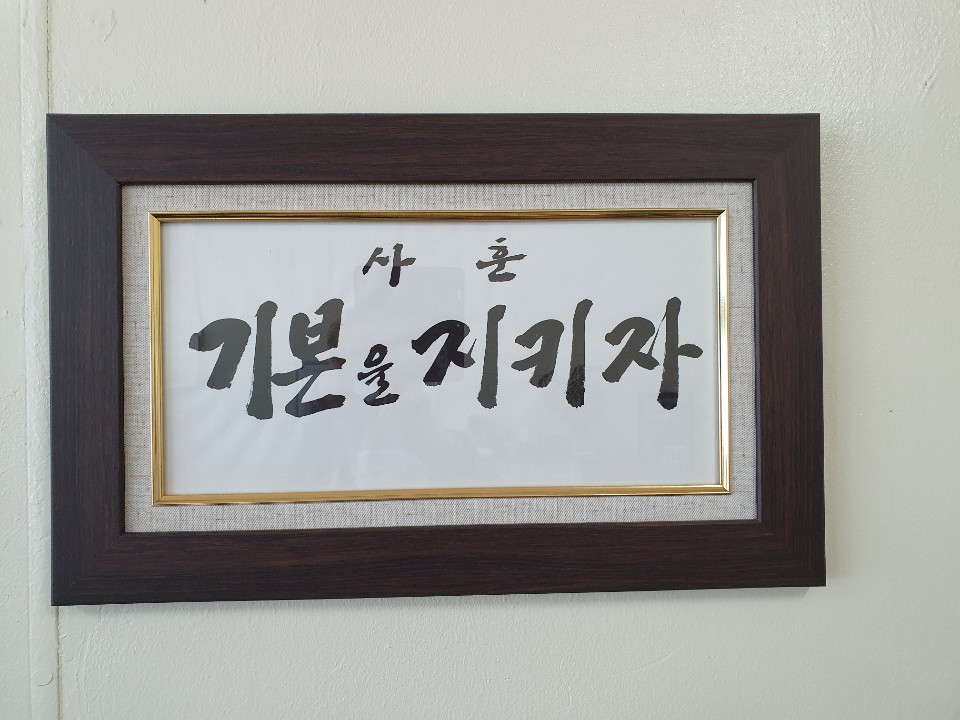 사 훈
기본을 지키자